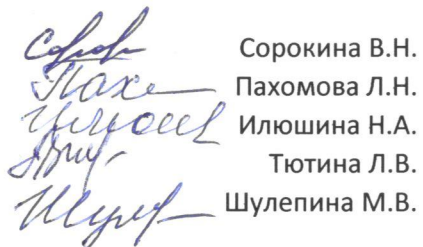 Сорокина В.Н.
Пахомова Л.Н.
Илюшина Н.А.
Тютина Л.В.
Шулепина М.В.